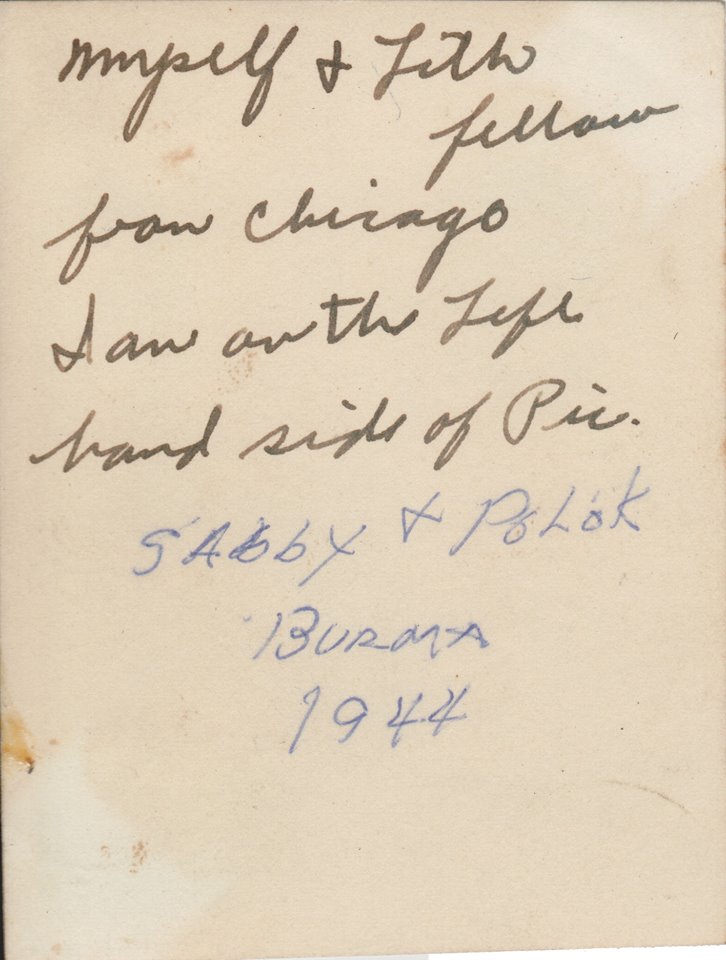 myself & Lith
fellow
from Chicago
I am on the Left
hand side of Pic.
SAbby & PoLok
BURMA
1944